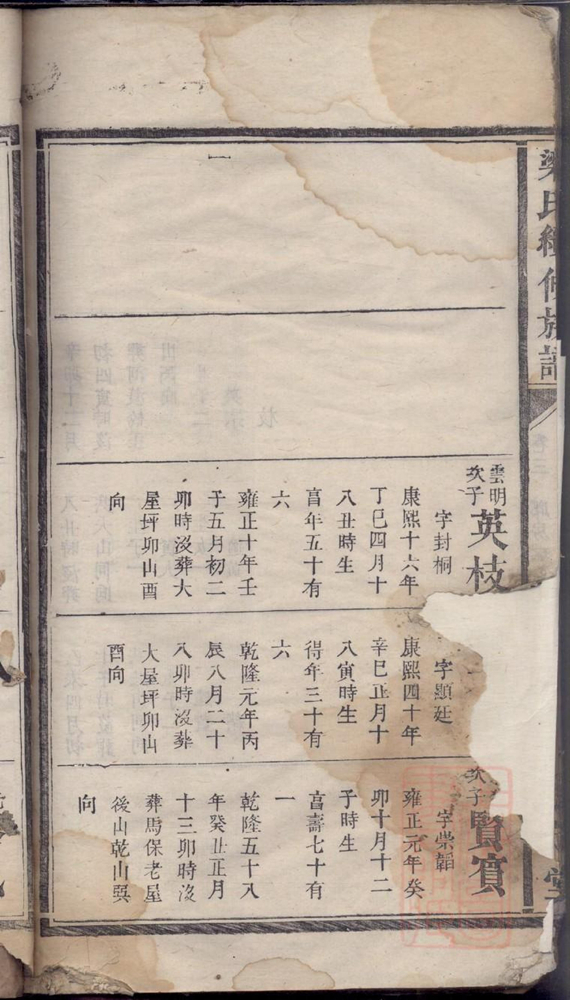 梁氏續修族譜
雲明
次子
英枝
字封桐
康熙十六年
丁巳四月十
八丑時生
享年五十有
六
雍正十年壬
子五月初二
卯時沒葬大
屋坪卯山酉
向
字顯廷
康熙四十年
辛巳正月十
八寅時生
得年三十有
六
乾隆元年丙
辰八月二十
八卯時沒葬
大屋坪卯山
酉向
次子
賢賓
字榮韜
雍正元年癸
卯十月十二
子時生
享壽七十有
一
乾隆五十八
年癸丑正月
十三卯時沒
葬馬保老屋
後山乾山巽
向
堂